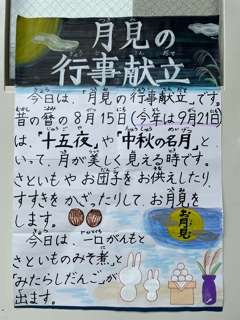 月見の
行事献立
今日は、「月見の行事献立」です。
昔の暦の8月15日(今年は9月21日)
は、「十五夜」や「中秋の名月」と
いって、月が美しく見える時です。
さといもやお団子をお供えしたり、
すすきをかざったりして、お月見を
します。
お月見
今日は、一口がんもと
さといものみそ煮」と
「みたらしだんご」が
出ます。